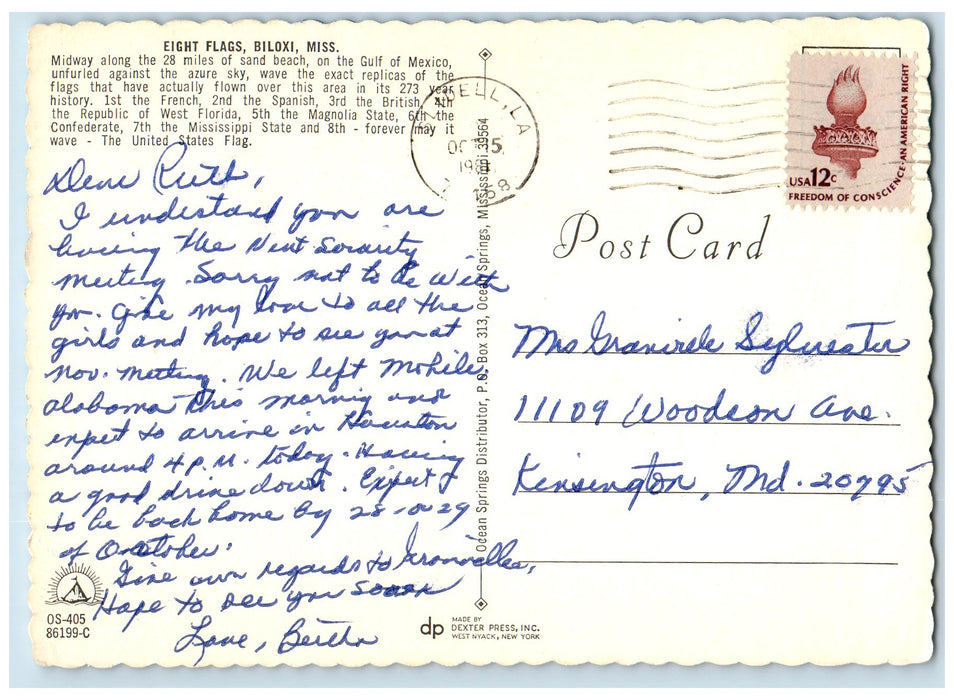 EIGHT FLAGS, BILOXI, MISS.
Midway along the 28 miles of sand beach, on the Gulf of Mexico,
unfurled against the azure sky, wave the exact replicas of the
flags that have actually flown over this area in its 273 year
history. 1st the French, 2nd the Spanish, 3rd the British, 4th
the Republic of West Florida, 5th the Magnolia State, 6th the
Confederate, 7th the Mississippi State and 8th - forever may it
wave - The United States Flag.
Dear Ruth,
I understand you are
having the next Sorority
meeting. Sorry not to be with
you. Give my love to all the
girls and hope to see you at
Nov. meeting. We left Mobile
Alabama this morning and
expect to arrive in Houston
around 4 P.M. today. Having
a good drive down. Expect
to be back home by 28 - or 29
of October.
Give our regards to Granville,
Hope to see you soon
Love, Bertha
OS-405
86199-C
Ocean Springs Distributor, P.O. Box 313, Ocean Springs, Mississippi 39564
dp MADE BY
DEXTER PRESS, INC.
WEST NYACK, NEW YORK
DELL, LA
OCT 5
198
USA 12c
FREEDOM OF CONSCIENCE - AN AMERICAN RIGHT
Post Card
Mrs Granville Sylvester
11109 Woodson Ave.
Kensington, Md. 20795